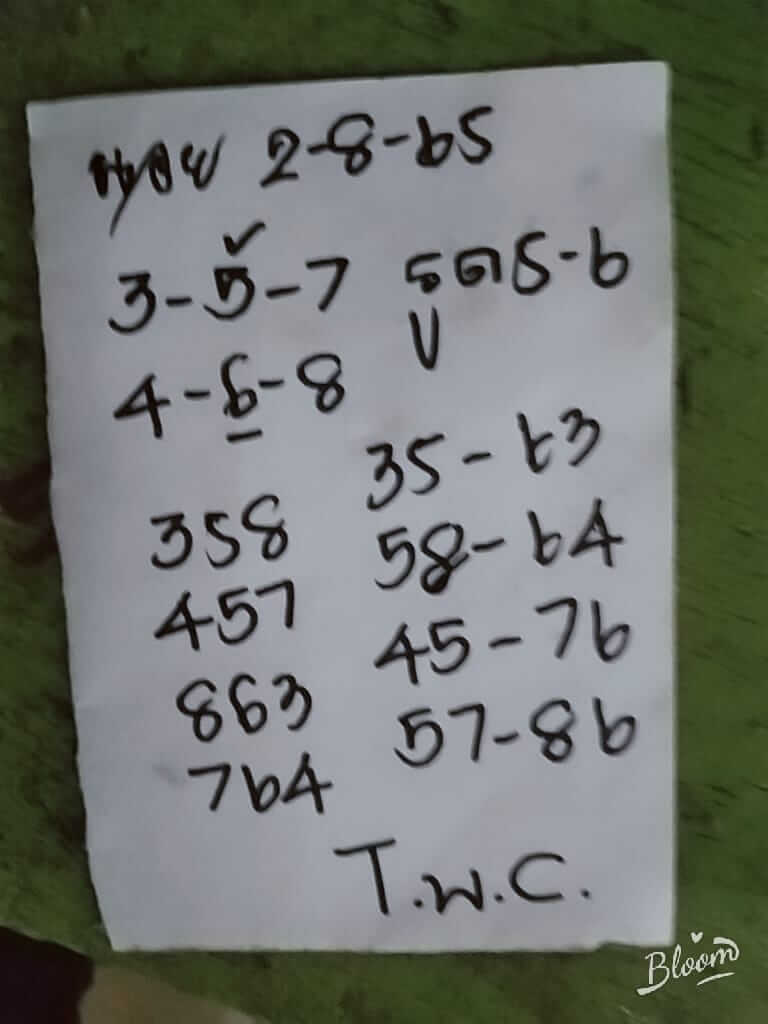 หวย 2-8-65
3-5-7 รูด5-6
4-6-8
35-63
358
58-64
457
45-76
863
57-86
764
T.W.C.
Bloom